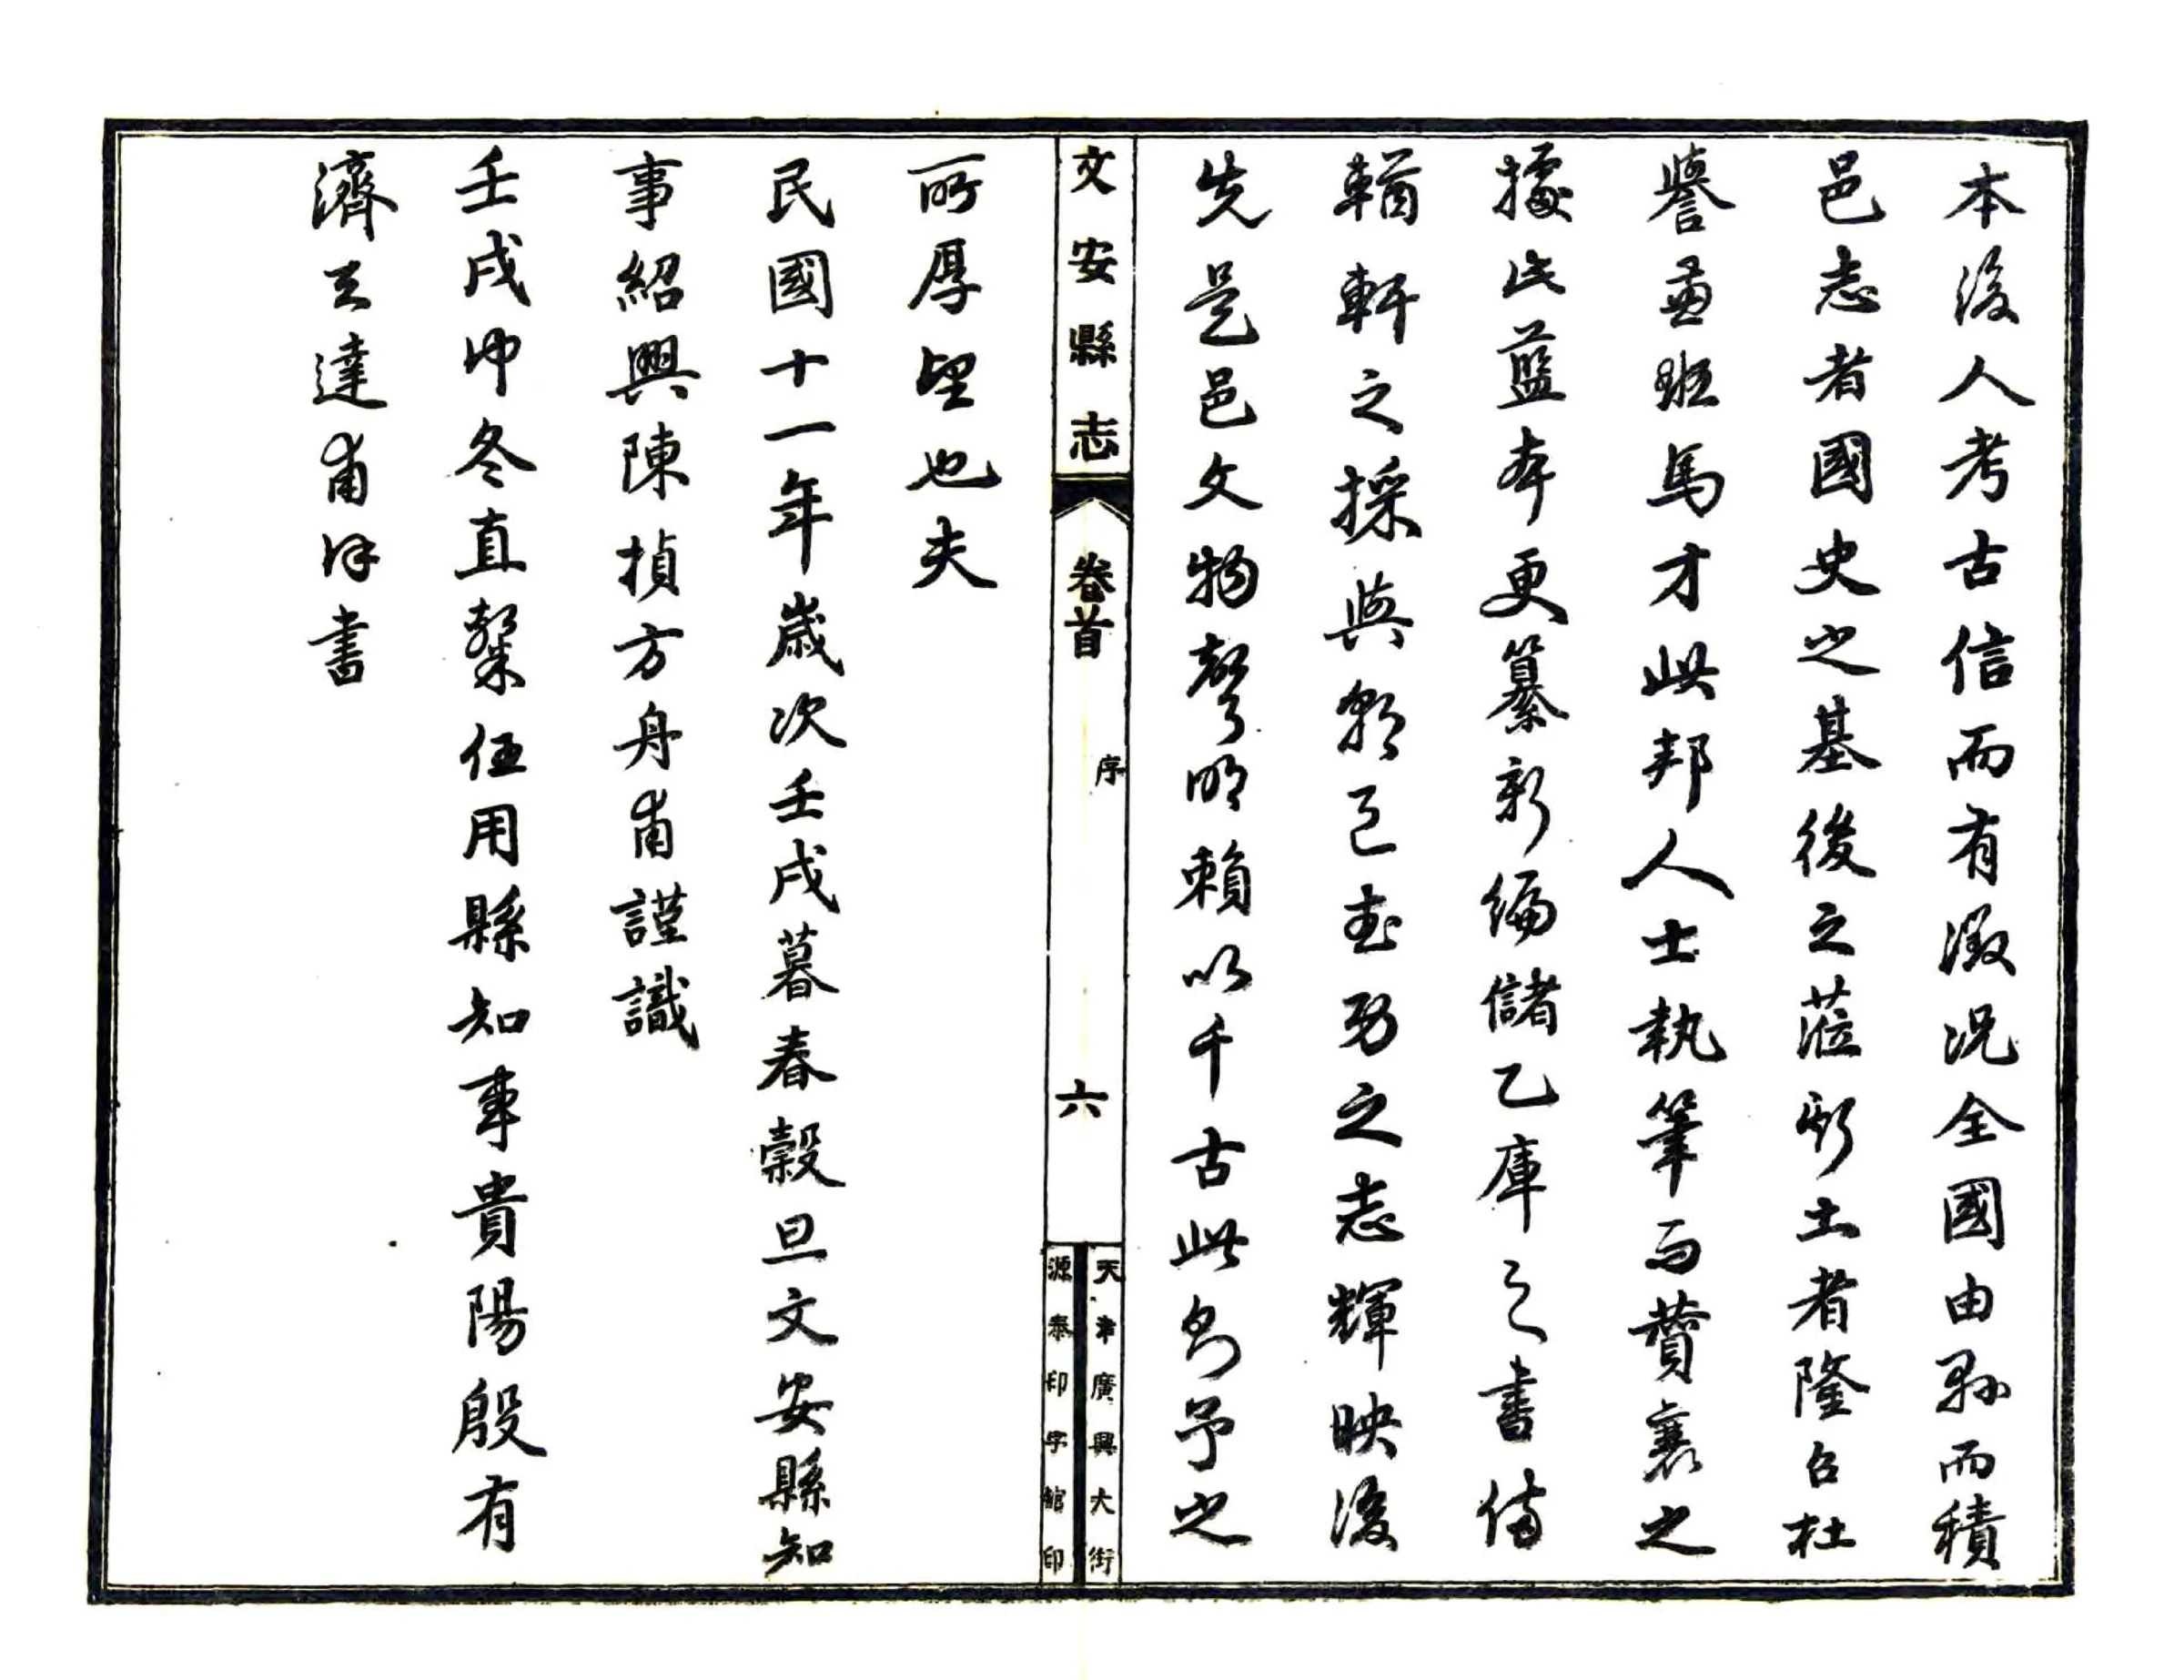 本後人考古信而有澂況全國由縣而積
邑志者國史之基後之蒞斯土者隆召杜
譽兼班馬才此邦人士執筆而贊襄之
據此藍本更纂新編儲乙庫之書備
輶軒之採與之志輝映後
先是邑文物聲明賴以千古此則予之
文安縣志
卷首
序
六
天津廣興大街
源泰印字館印
所厚望也夫
民國十一年歲次壬戌暮春穀旦文安縣知
事紹興陳楨方舟甫謹識
壬戌仲冬直隸任用縣知事貴陽殷有
濟云達甫拜書